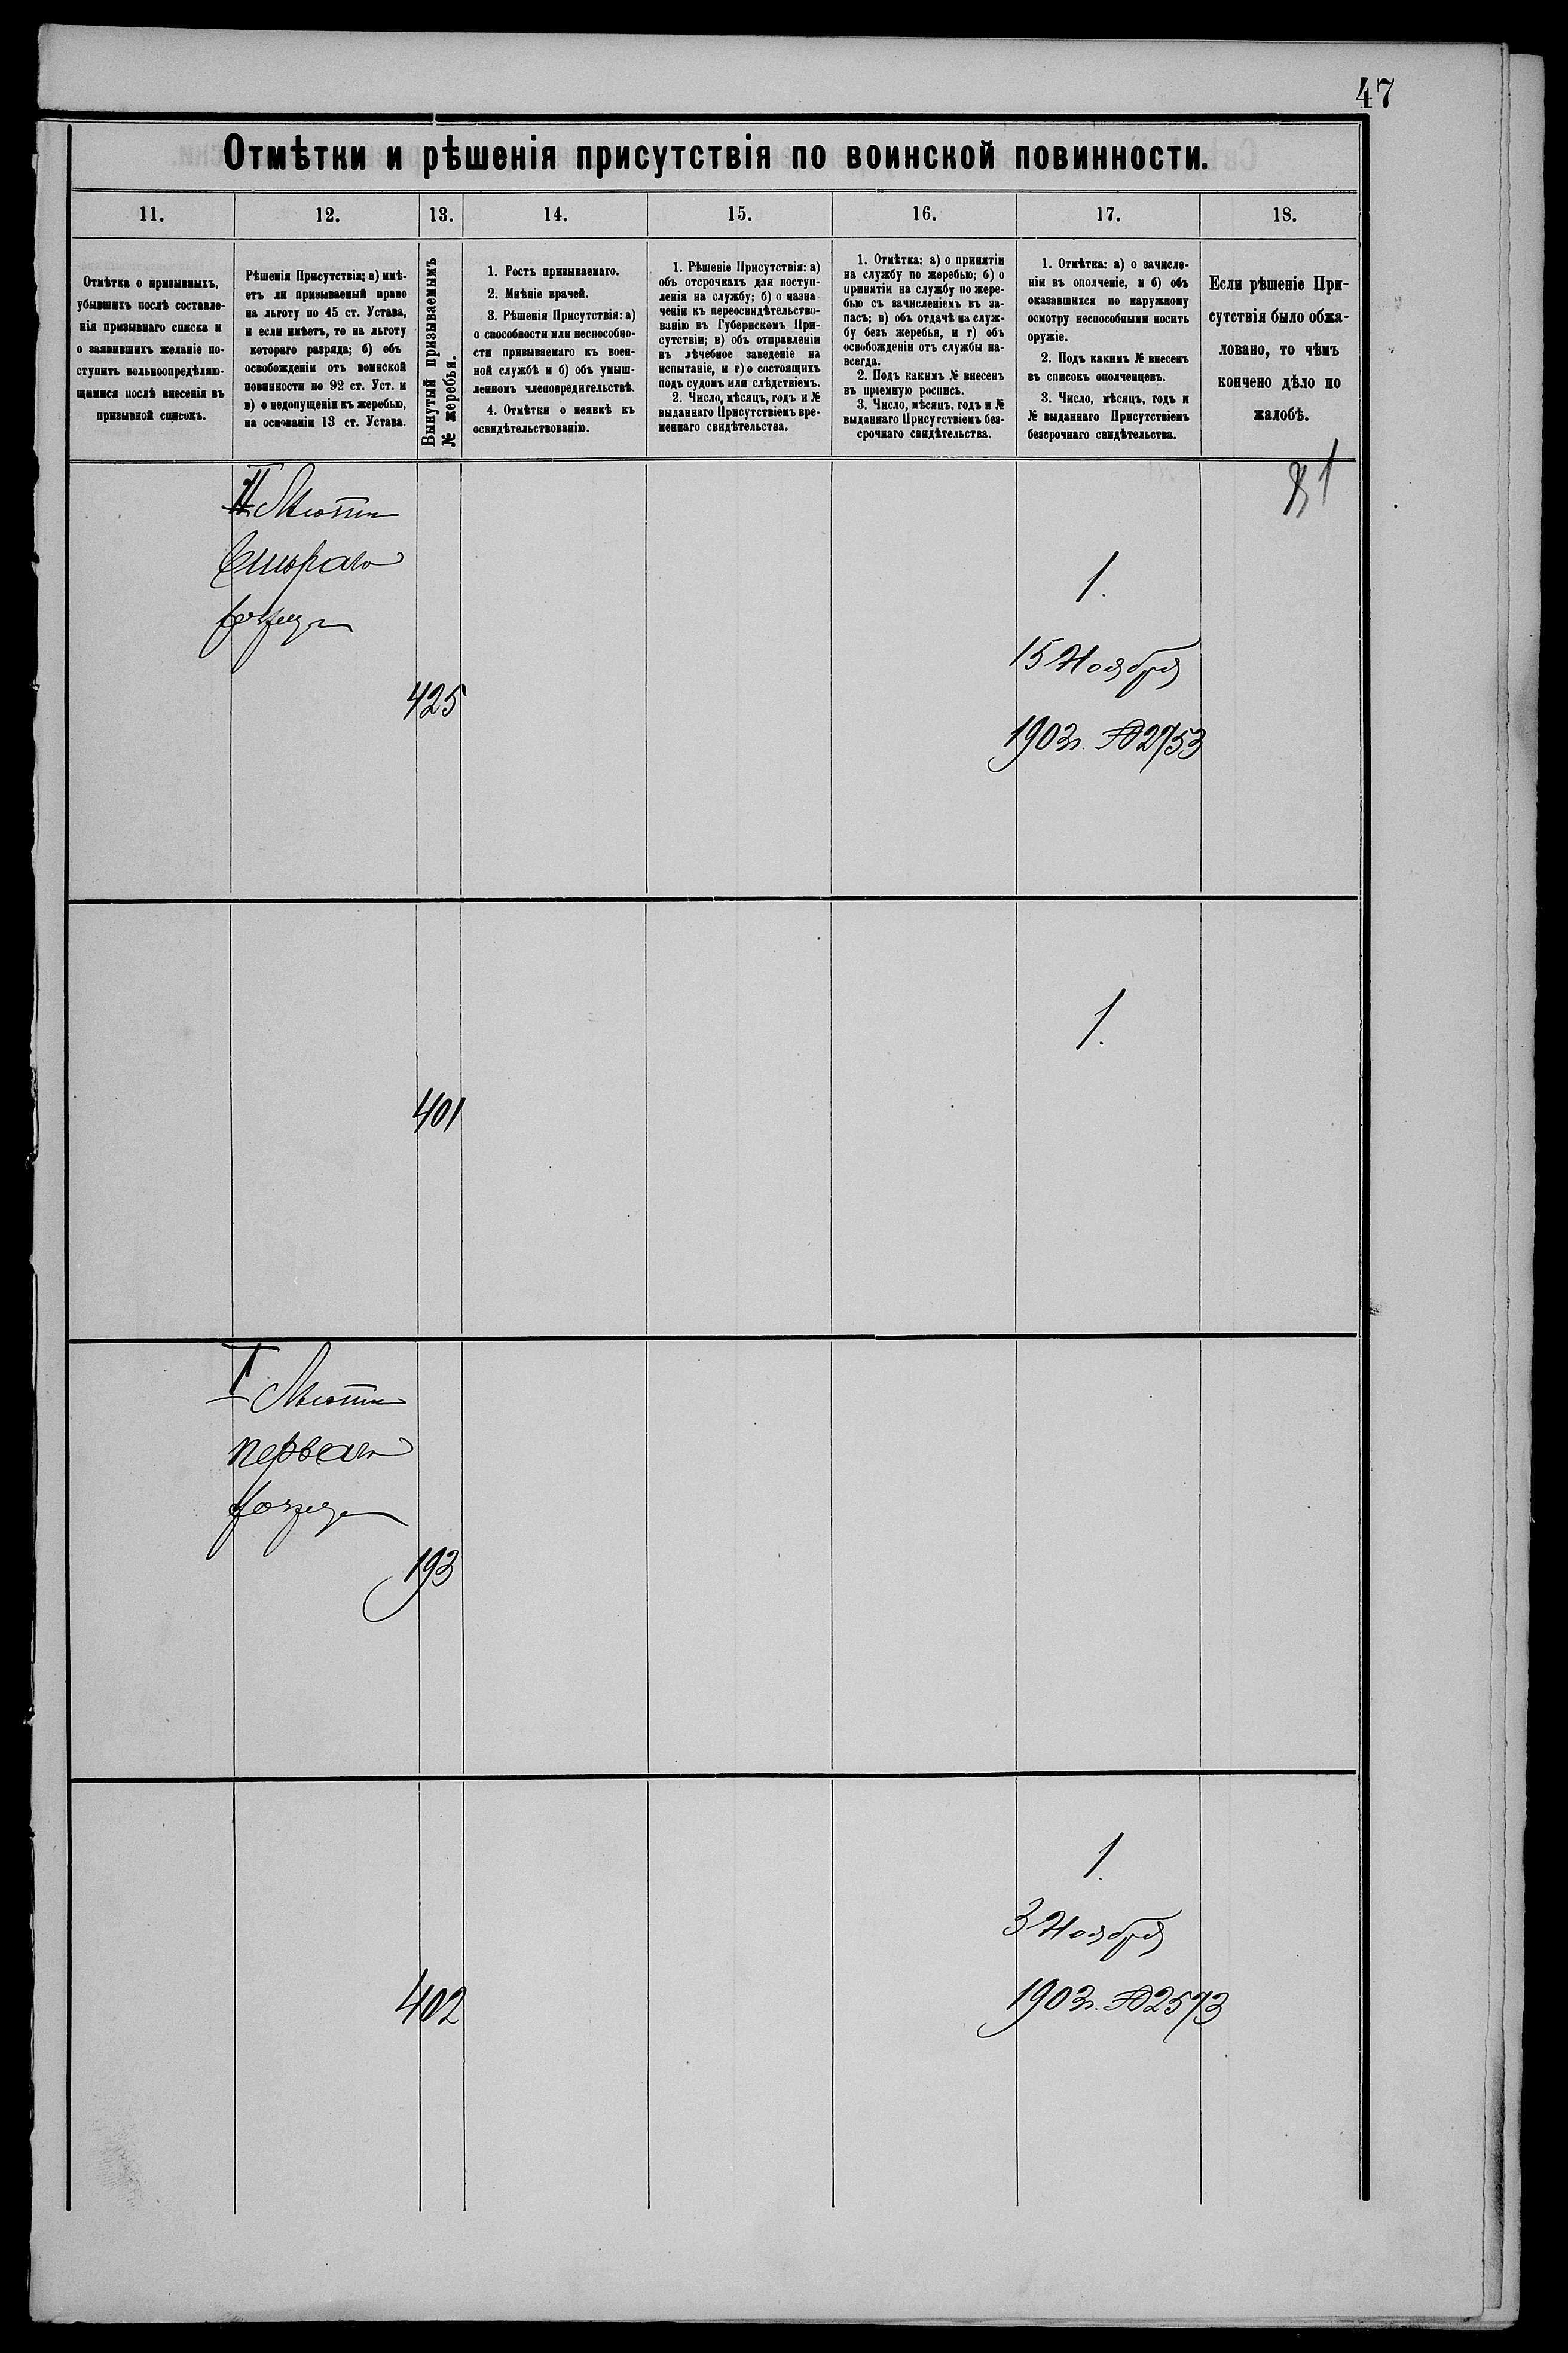 47
Отмѣтки и рѣшенія присутствія по воинской повинности.
11.
12.
13.
14.
15.
16.
17.
18.
Отмѣтка о призывныхъ,
убывшихъ послѣ составле-
нія призывнаго списка и
о заявившихъ желаніе по-
ступить вольноопредѣляю-
щимися послѣ внесенія въ
призывной списокъ.
Рѣшенія Присутствія: а) имѣ-
етъ ли призываемый право
на льготу по 45 ст. Устава,
и если имѣетъ, то на льготу
котораго разряда; б) объ
освобожденіи отъ воинской
повинности по 92 ст. Уст. и
в) о недопущеніи къ жеребью,
на основаніи 13 ст. Устава.
Вынутый призываемымъ
№ жеребья.
1. Ростъ призываемаго.
2. Мнѣніе врачей.
3. Рѣшенія Присутствія: а)
о способности или неспособно-
сти призываемаго къ воен-
ной службѣ и б) объ умыш-
ленномъ членовредительствѣ.
4. Отмѣтки о неявкѣ къ
освидѣтельствованію.
1. Рѣшеніе Присутствія: а)
объ отсрочкахъ для поступ-
ленія на службу; б) о назна
ченіи къ переосвидѣтельство-
ванію въ Губернскомъ При-
сутствіи; в) объ отправленіи
въ лѣчебное заведеніе на
испытаніе, и г) о состоящихъ
подъ судомъ или слѣдствіемъ.
2. Число, мѣсяцъ, годъ и №
выданнаго Присутствіемъ вре-
меннаго свидѣтельства.
1. Отмѣтка: а) о принятіи
на службу по жеребью; б) о
принятіи на службу по жере-
бью съ зачисленіемъ въ за-
пасъ; в) объ отдачѣ на служ-
бу безъ жеребья, и г) объ
освобожденіи отъ службы на-
всегда.
2. Подъ какимъ № внесенъ
въ пріемную роспись.
3. Число, мѣсяцъ, годъ и №
выданнаго Присутствіемъ без-
срочнаго свидѣтельства.
1. Отмѣтка: а) о зачисле-
ніи въ ополченіе, и б) объ
оказавшихся по наружному
осмотру неспособными носить
оружіе.
2. Подъ какимъ № внесенъ
въ списокъ ополченцевъ.
3. Число, мѣсяцъ, годъ и
№ выданнаго Присутствіемъ
безсрочнаго свидѣтельства.
Если рѣшеніе При-
сутствія было обжа-
ловано, то чѣмъ
кончено дѣло по
жалобѣ.
II Льготы
второго
разряда
425
1.
15 Ноября
1903г. №2753
401
1.
I Льготы
перваго
разряда
193
402
1.
3 Ноября
1903г. №2573